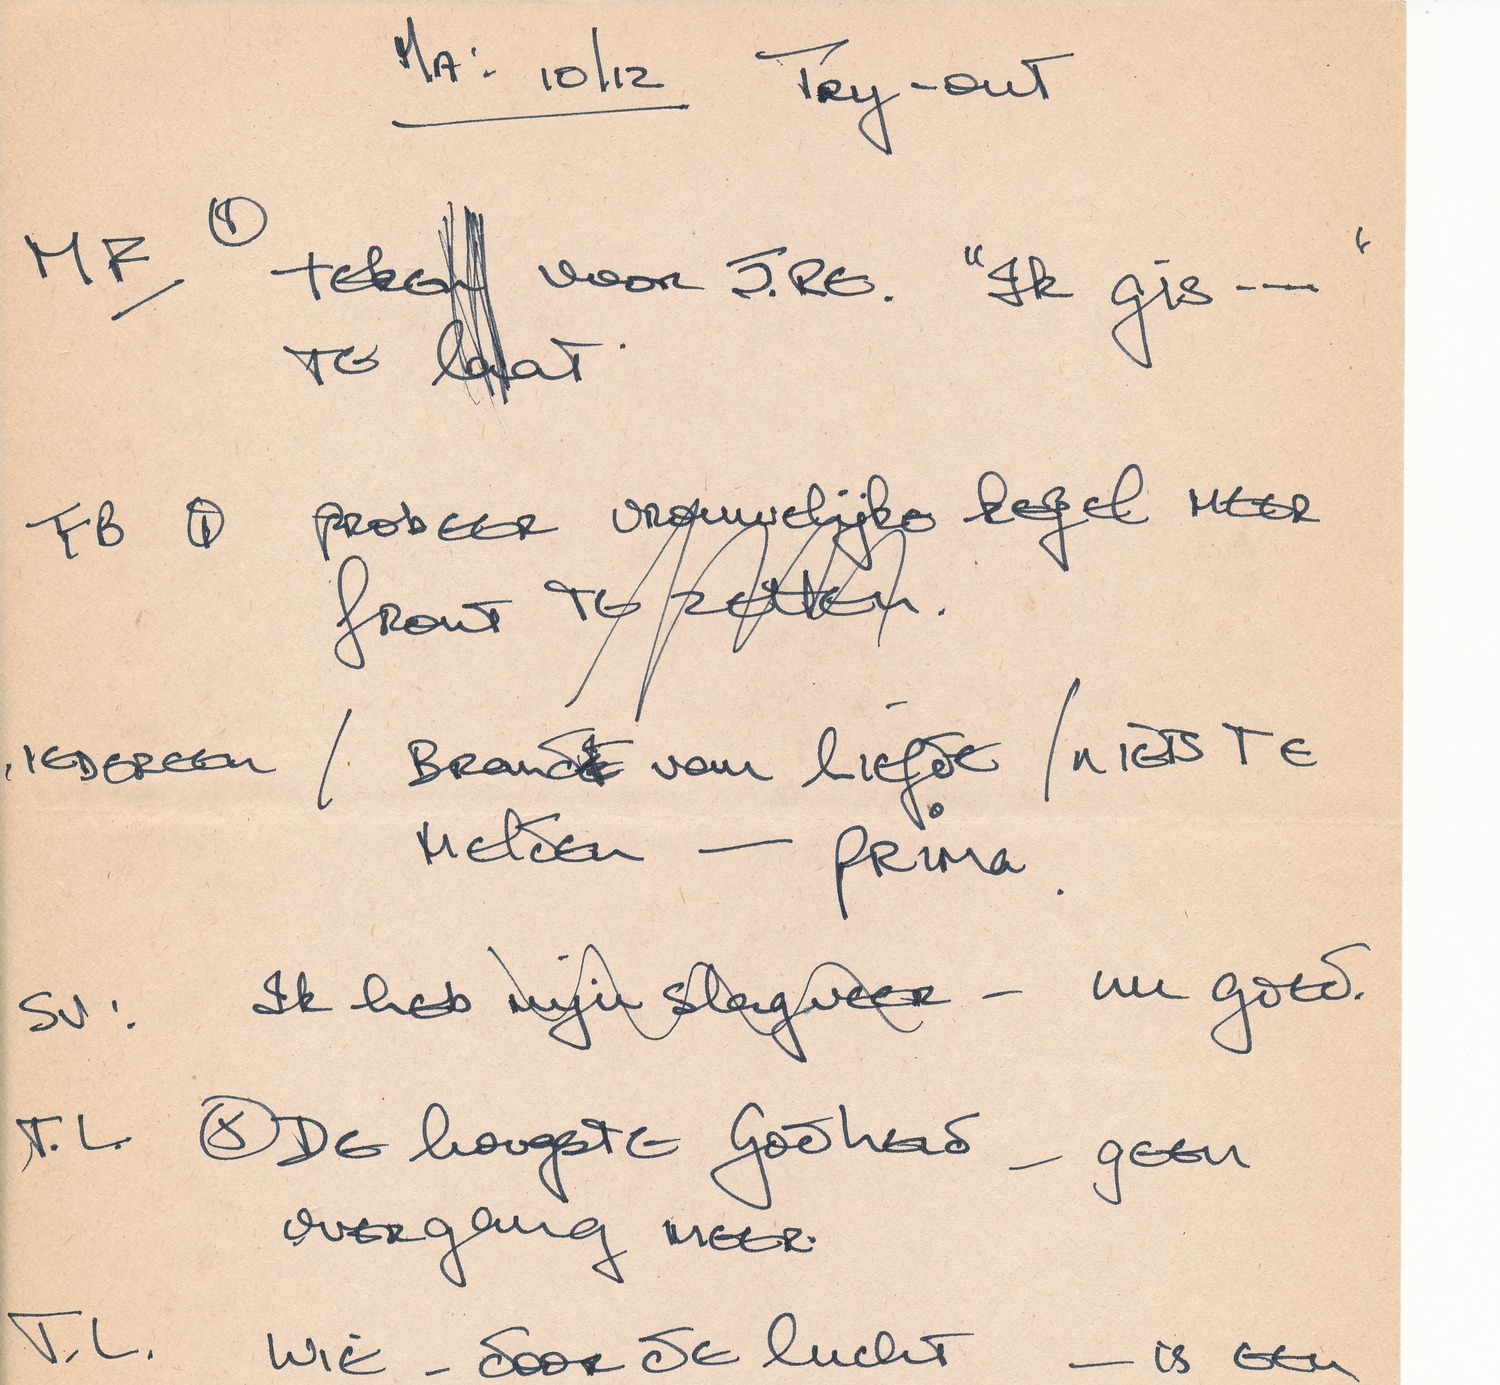 MA: 10/12 Try-out
MF ① teken voor J.RE. "Ik gis --- "
te laat.
FB ① probeer vrouwelijke kegel meer
front te zetten.
iedereen / Brandt van liefde / niets te
melden — prima.
SV: Ik heb mijn slagveer — nu goed.
T.L. De hoogste Godheid — geen
overgang meer.
T.L. Wie - door de lucht — is een